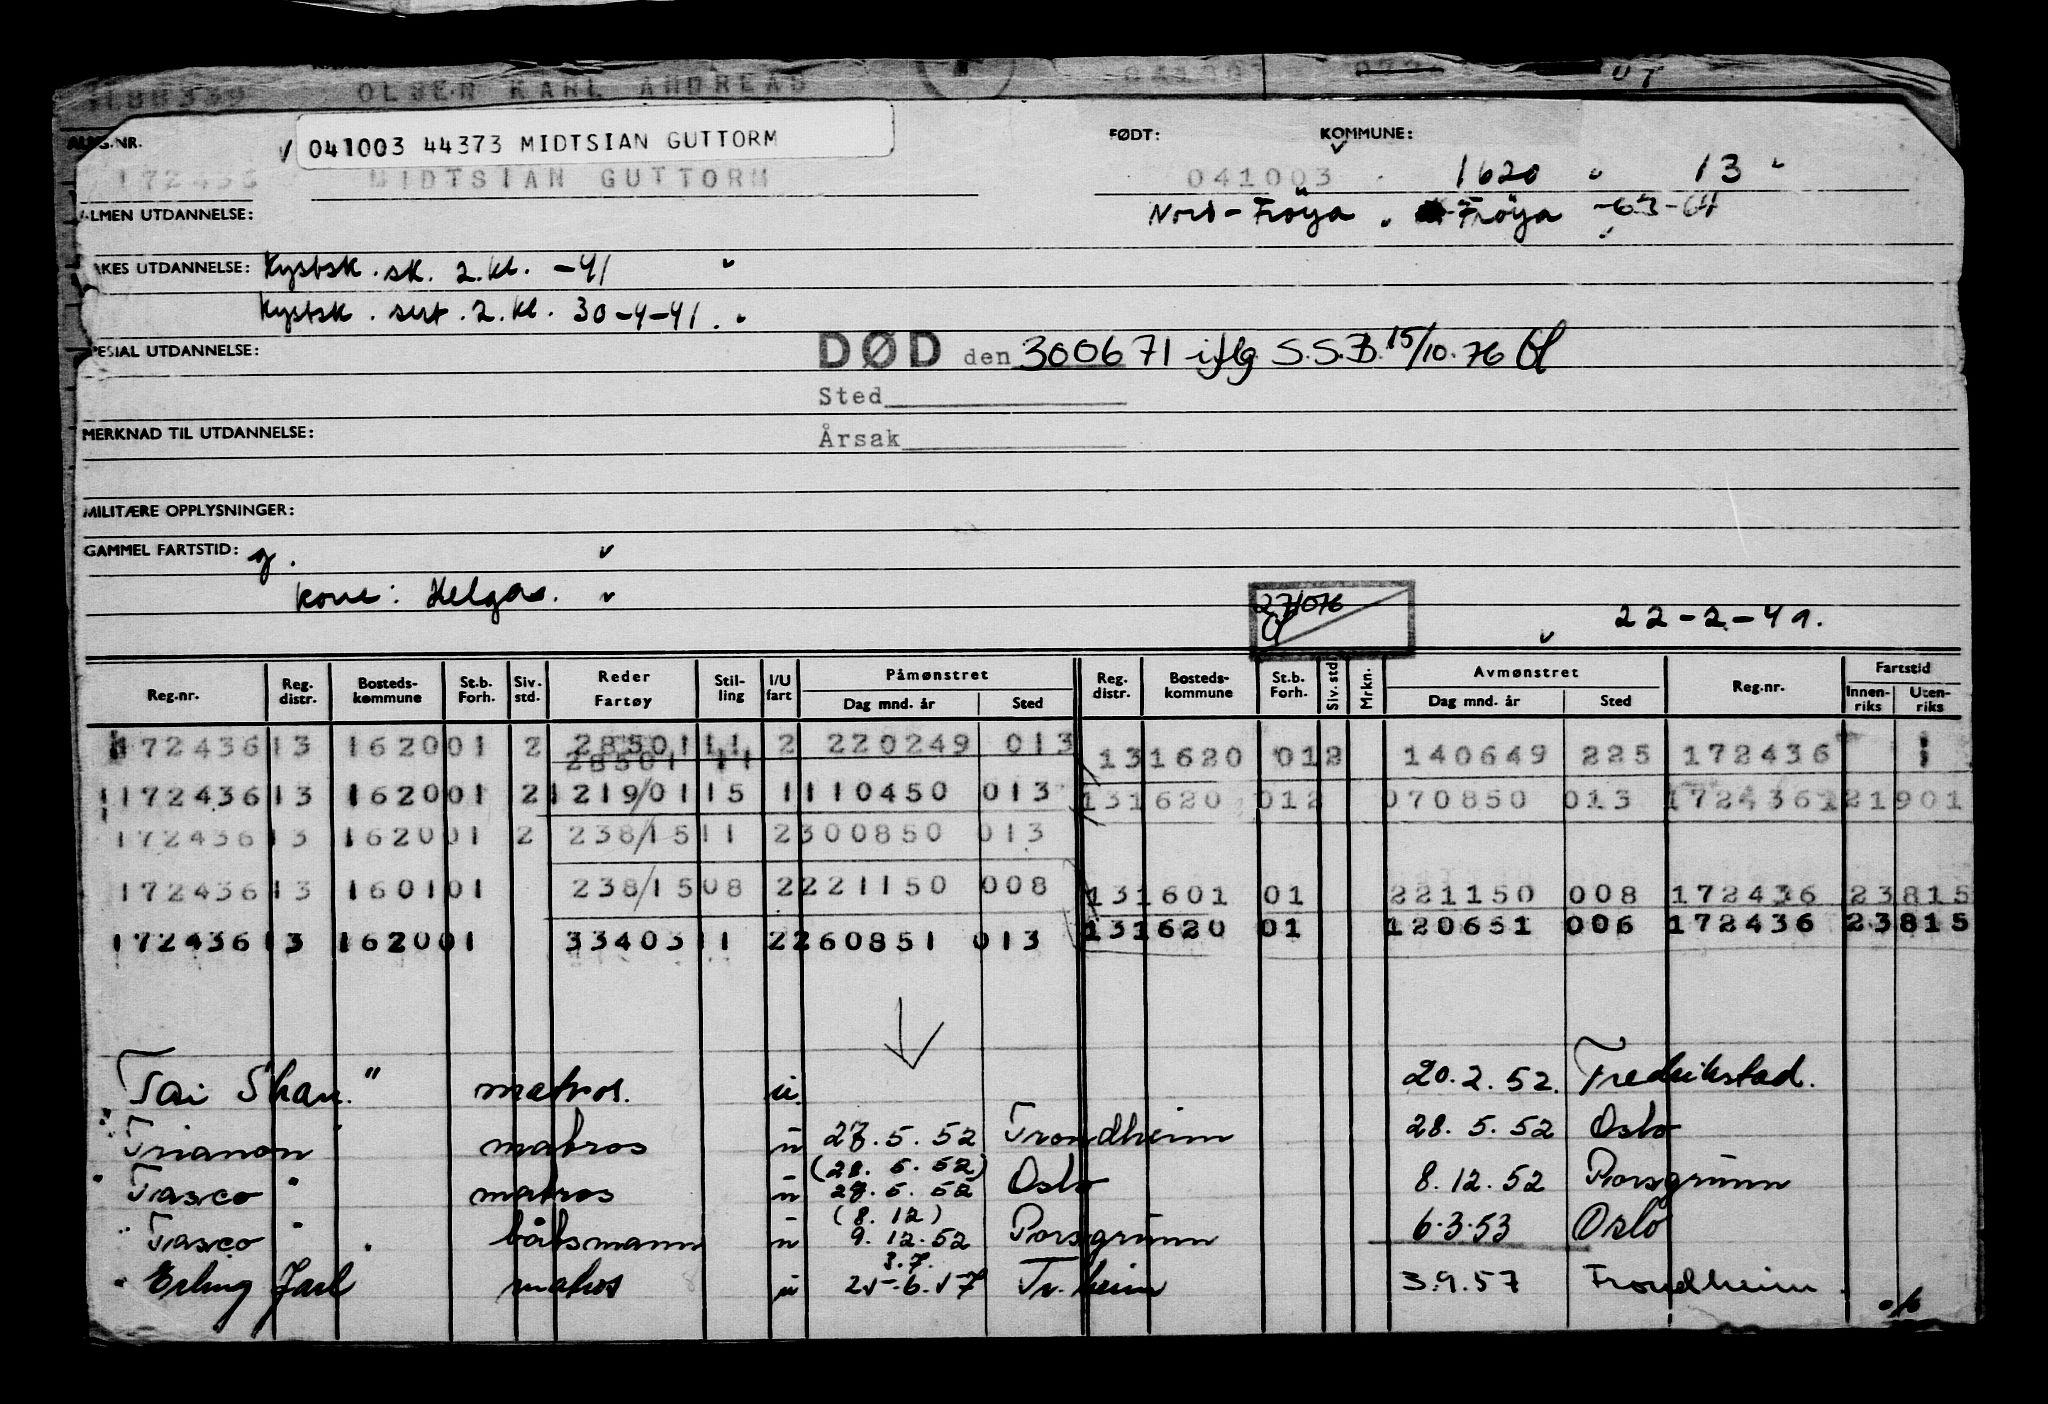 OLSEN KARL ANDREAS
ALBG.NR.
✓ 041003 44373 MIDTSIAN GUTTORM
FØDT: KOMMUNE:
172436 MIDTSIAN GUTTORM 041003 1620 13
Nord-Frøya. Frøya -63-64
ALMEN UTDANNELSE:
FAKES UTDANNELSE: Kystsk. sk. 2. kl. -41
Kystsk. sert. 2. kl. 30-4-41.
SPESIAL UTDANNELSE:
DØD den 300671 iflg S.S.B. 15/10.76
Sted
MERKNAD TIL UTDANNELSE:
Årsak
MILITÆRE OPPLYSNINGER:
GAMMEL FARTSTID: g.
kone: Helga.
271076
22-2-49.
Reg.nr. Reg. distr. Bosteds-kommune St.b. Forh. Siv. std. Reder Fartøy Stil-ling I/U fart Påmønstret Dag mnd. år Sted Reg. distr. Bosteds-kommune St.b. Forh. Siv. std. Mrkn. Avmønstret Dag mnd. år Sted Reg.nr. Fartstid Innen-riks Uten-riks
172436 13 1620 01 2 28501 11 2 220249 013 13 1620 01 2 140649 225 172436
28501 11
172436 13 1620 01 2 1219/01 15 1 110450 013 13 1620 01 2 070850 013 172436 121901
172436 13 1620 01 2 238/15 11 2 300850 013
172436 13 1601 01 238/15 08 2 221150 008 13 1601 01 221150 008 172436 23815
172436 13 1620 01 33403 11 2 260851 013 13 1620 01 120651 006 172436 23815
"Tai Shan" matros. u. 20.2.52. Fredrikstad.
"Trianon" matros u 27.5.52 Trondheim 28.5.52 Oslo
"Tasco" matros u (28.5.52) 28.5.52 Oslo 8.12.52 Porsgrunn
"Tasco" båtsmann u (8.12) 9.12.52 Porsgrunn 6.3.53 Oslo
"Erling Jarl matros u 3.7. 25-6.57 Tr.heim 3.9.57 Trondheim.